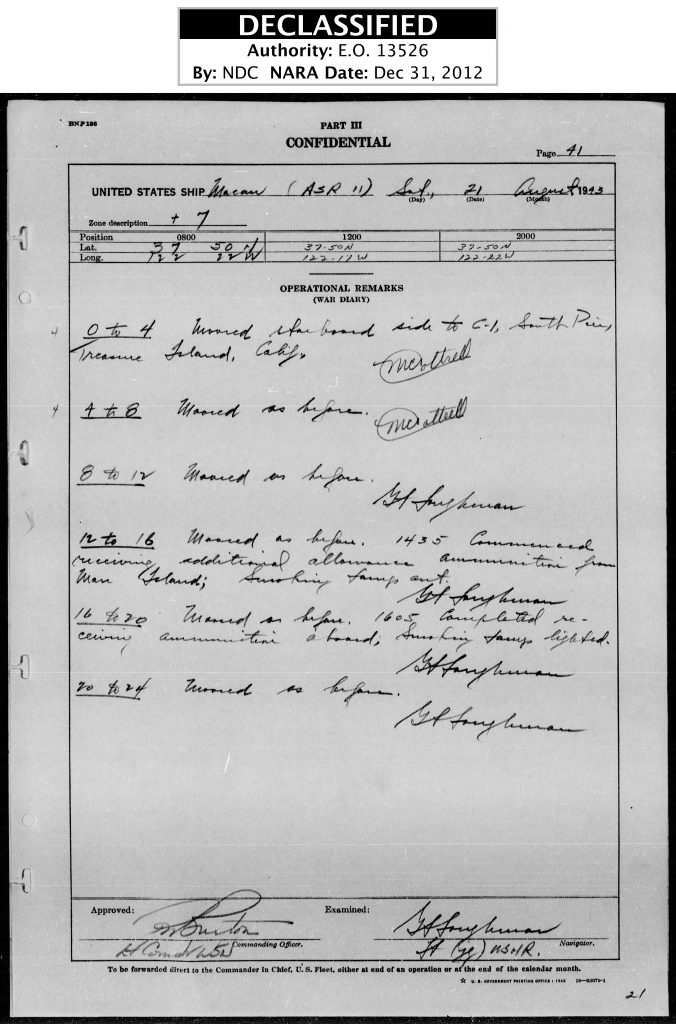 DECLASSIFIED
Authority: E.O. 13526
By: NDC NARA Date: Dec 31, 2012
BNP 136
PART III
CONFIDENTIAL
Page 41
UNITED STATES SHIP Macaw (ASR 11) Sat, 21 August 1943
(Day) (Date) (Month)
Zone description + 7
Position 0800 1200 2000
Lat. 37 50 N 37-50 N 37-50 N
Long. 122 22 W 122-17 W 122-22 W
OPERATIONAL REMARKS
(WAR DIARY)
0 to 4 Moored starboard side to C-1, South Pier,
Treasure Island, Calif.
McCottrell
4 to 8 Moored as before.
McCottrell
8 to 12 Moored as before.
GH Loughman
12 to 16 Moored as before. 1435 Commenced
receiving additional allowance ammunition from
Mare Island; Smoking lamp out.
GH Loughman
16 to 20 Moored as before. 1605 Completed re-
ceiving ammunition aboard; Smoking lamp lighted.
GH Loughman
20 to 24 Moored as before.
GH Loughman
Approved: Examined:
Burton GH Loughman
Lt Comdr USN Commanding Officer. Lt (jg) USNR. Navigator.
To be forwarded direct to the Commander in Chief, U. S. Fleet, either at end of an operation or at the end of the calendar month.
☆ U. S. GOVERNMENT PRINTING OFFICE : 1942
21